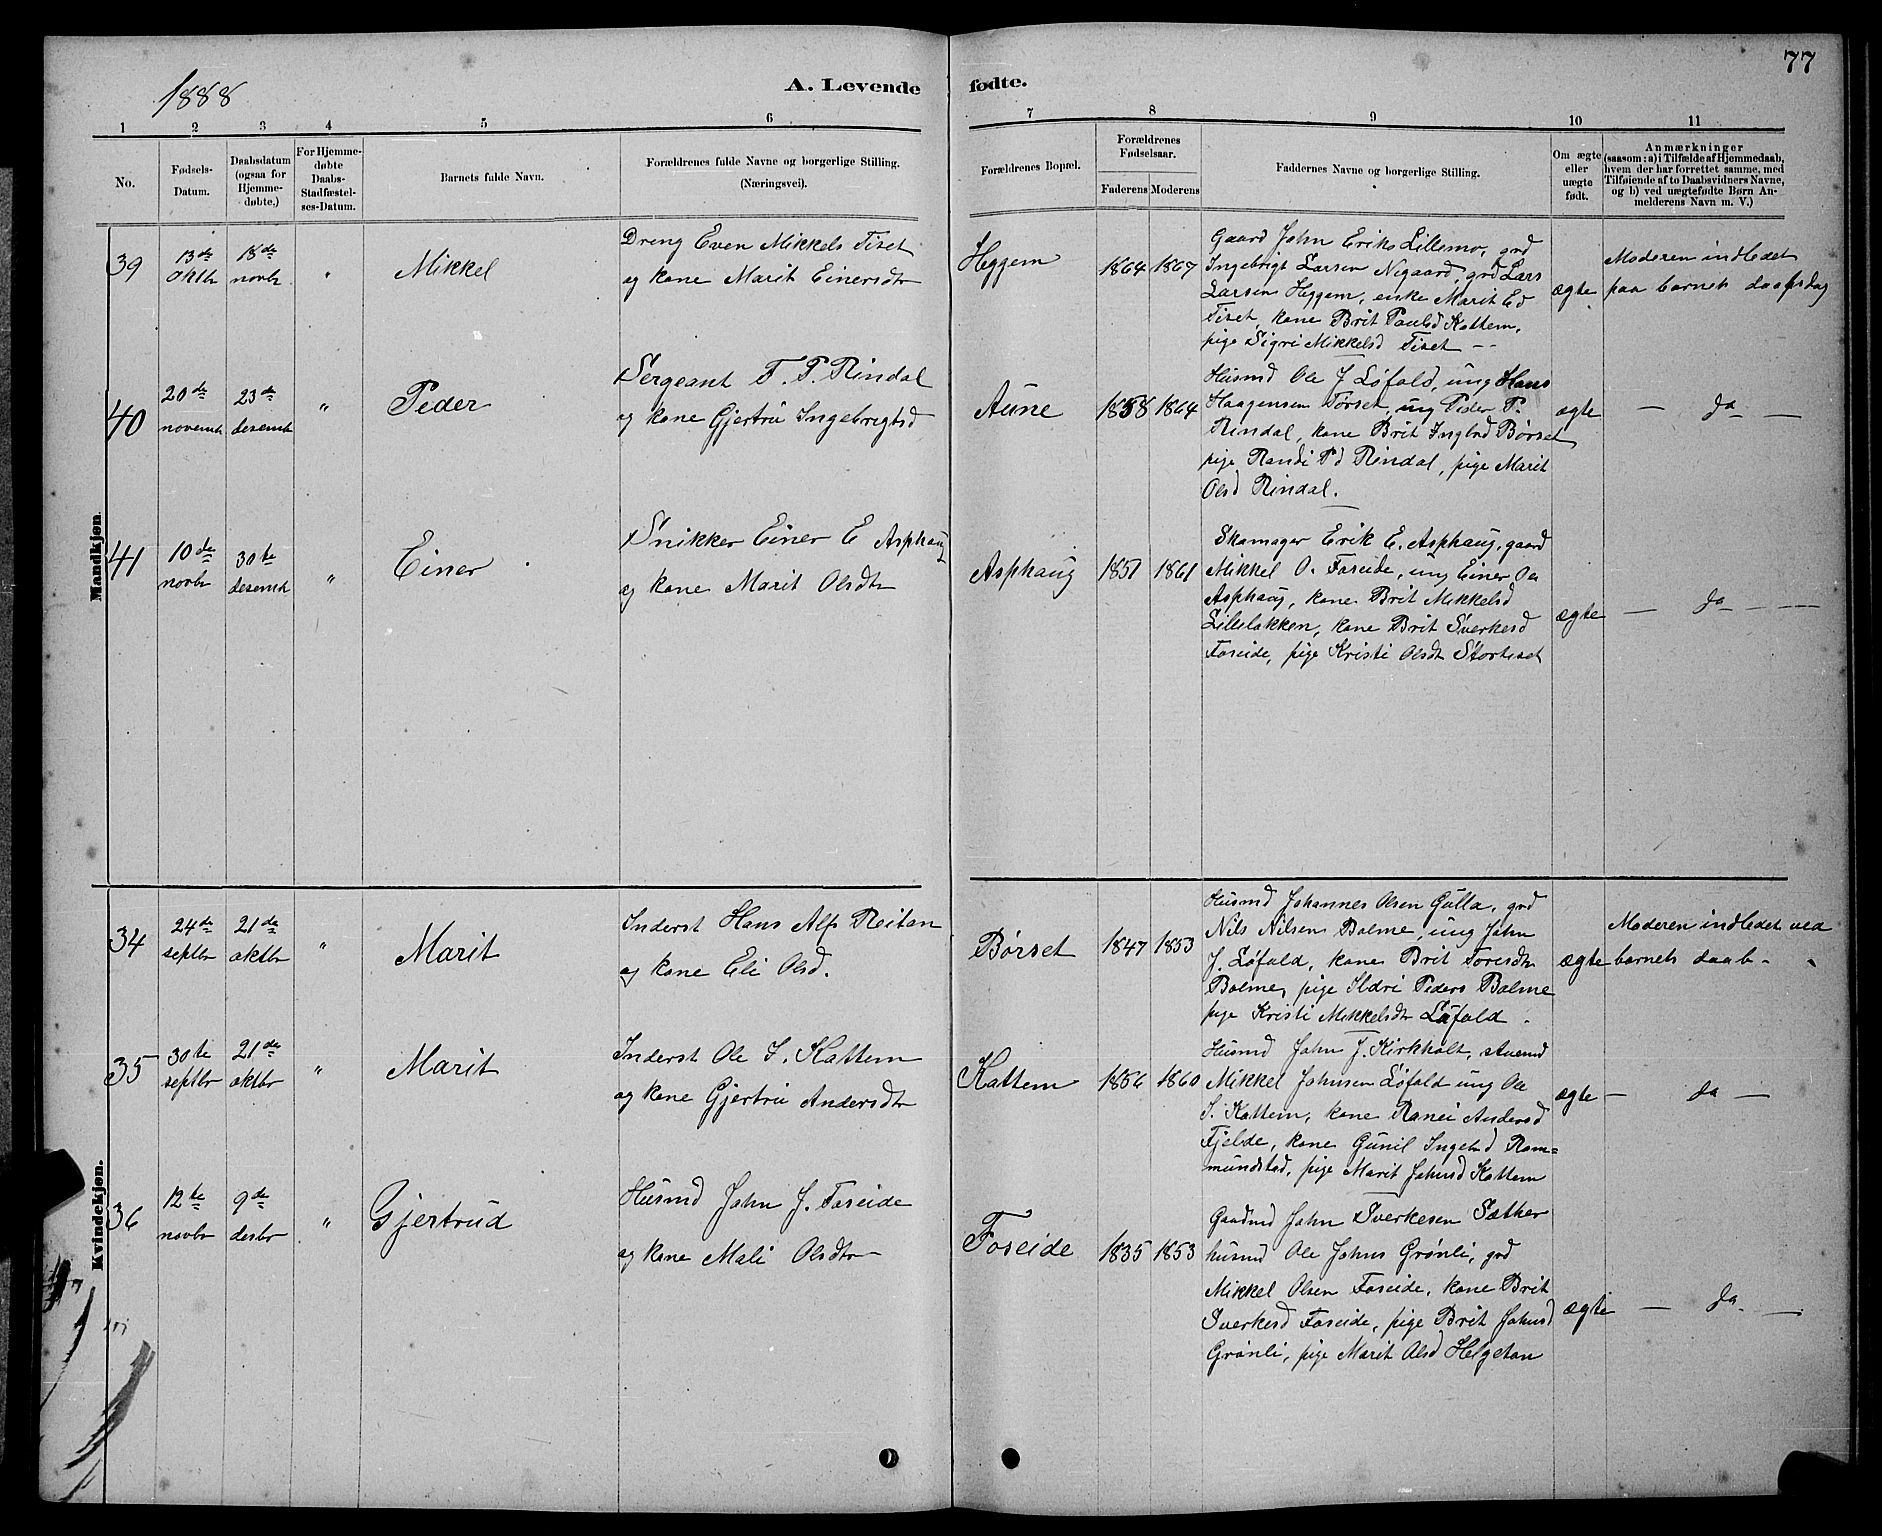 77
1888
A. Levende fødte.
1 2 3 4 5 6 7 8 9 10 11
No.
Fødsels-
Datum.
Daabsdatum
(ogsaa for
Hjemme-
døbte.)
For Hjemme-
døbte
Daabs-
Stadfæstel-
ses-Datum.
Barnets fulde Navn.
Forældrenes fulde Navne og borgerlige Stilling.
(Næringsvei).
Forældrenes Bopæl.
Forældrenes
Fødselsaar.
Faderens Moderens
Faddernes Navne og borgerlige Stilling.
Om ægte
eller
uægte
født.
Anmærkninger
(saasom: a) i Tilfælde af Hjemmedaab,
hvem der har forrettet samme, med
Tilføiende af to Daabsvidners Navne,
og b) ved uægtefødte Børn An-
melderens Navn m. V.)
Mandkjøn.
39
13de
Oktbr
18de
novbr
"
Mikkel
Dreng Even Mikkels Tiset
og kone Marit Einersdtr
Heggem
1864 1867
Gaard John Eriks Lillemo, grd
Ingebrigt Larsen Negaard, grd Lars
Larsen Heggem, enke Marit Ed
Tiset, kone Brit Paulsd Kattem,
pige Sigri Mikkelsd Tiset --
ægte
Moderen indledet
paa barnets daabsdag
40
20de
novemb
23de
desemb
"
Peder
Sergeant T. P. Rindal
og kone Gjertru Ingebrigtsd
Aune
1858 1864
Husmd Ole J Løfald, ung Hans
Haagensen Tørset, ung Peder P.
Rindal, kone Brit Ingbd Børset
pige Randi Pd Rindal, pige Marit
Olsd Rindal.
ægte
— Ja —
41
10de
novbr
30te
desemb
"
Einer
Snikker Einer E Asphaug
og kone Marit Olsdtr
Asphaug
1851 1861
Skomager Erik E. Asphaug, gaard
Mikkel O. Foseide, ung Einer Ols
Asphaug, kone Brit Mikkelsd
Lilleløkken, kone Brit Sverkesd
Foseide, pige Kristi Olsdt Stortiset
ægte
— Ja - - -
Kvindekjøn.
34
24de
septbr
21de
oktbr
"
Marit
Inderst Hans Alfs Reitan
og kone Eli Olsd.
Børset
1847 1853
Husmd Johannes Olsen Gulla, grd
Nils Nilsen Bolme, ung John
J. Løfald, kone Brit Toresdtr
Bolme, pige Ildri Peders Bolme
pige Kristi Mikkelsdtr Løfald -
ægte
Moderen indledet ved
barnets daab -
35
30te
septbr
21de
oktbr
"
Marit
Inderst Ole I. Kattem
og kone Gjertru Andersdtr
Kattem
1856 1860
Husmd John J. Kirkholt, stuemd
Mikkel Johnsen Løfald ung Ole
I. Kattem, kone Ranei Andersd
Fjelde, kone Gunil Ingebd Rom=
mundstad, pige Marit Johnsd Kattem
ægte
— Ja —
36
12te
novbr
9de
desbr
"
Gjertrud
Husmd John J. Foseide
og kone Mali Olsdtr
Foseide
1835 1853
Gaardmd John Sverkesen Sæther
husmd Ole Johns Grønli, grd
Mikkel Olsen Foseide, kone Brit
Sverkesd Foseide, pige Brit Johnsd
Grønli, pige Marit Olsd Helgetun
ægte
— Ja. —